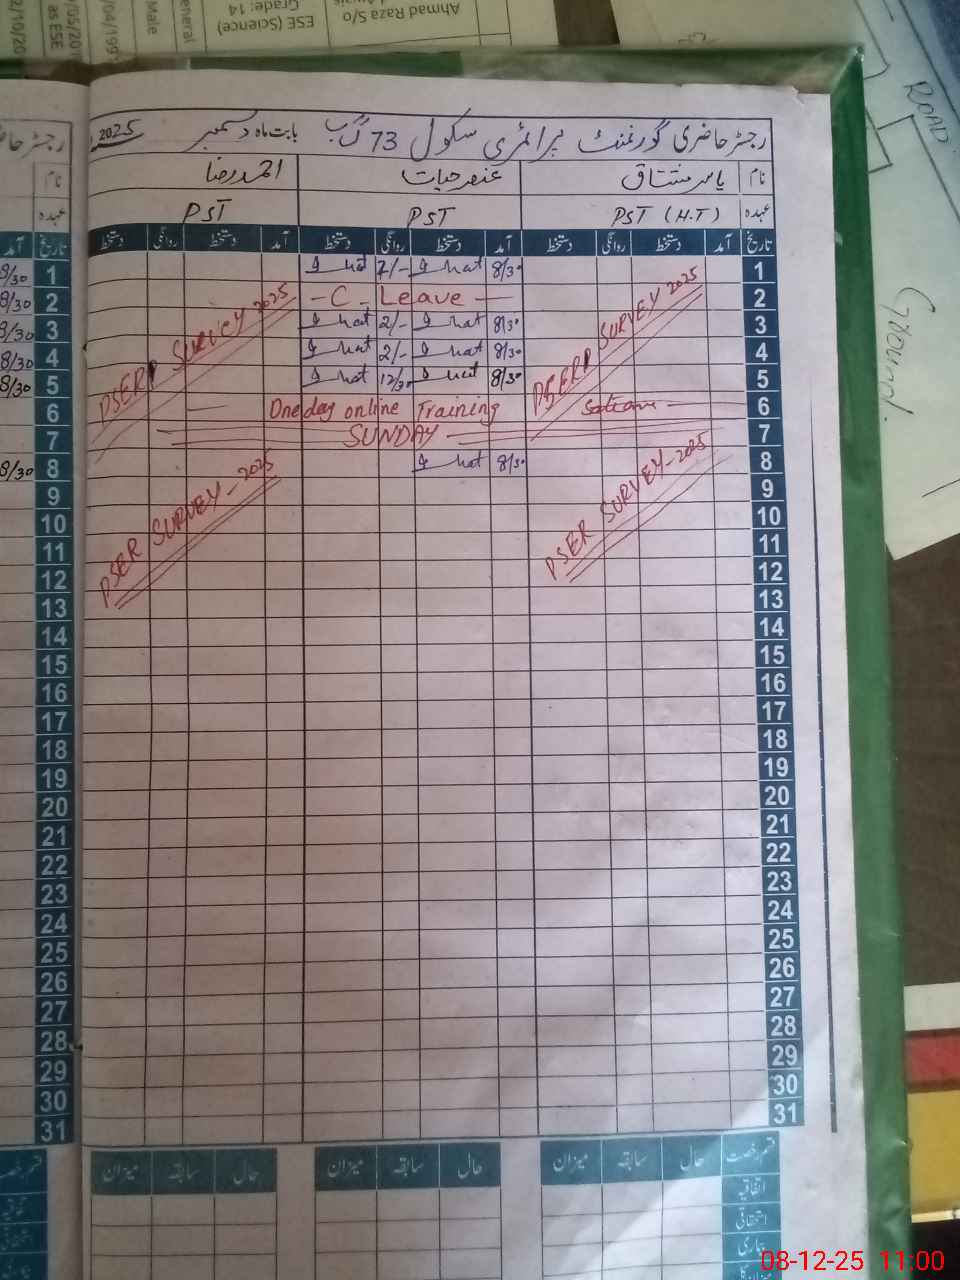 رجسٹر حاضری گورنمنٹ پرائمری سکول 73 گ ب بابت ماہ دسمبر 2025
نام یاسر مشتاق عنصر حیات احمد رضا
عہدہ PST (H.T) PST PST
تاریخ آمد دستخط روانگی دستخط آمد دستخط روانگی دستخط آمد دستخط روانگی دستخط تاریخ آمد
1 8/30 7/- 1 8/30
2 - C. Leave - 2 8/30
3 8/30 2/- 3 8/30
4 8/30 2/- 4 8/30
5 8/30 12/30 5 8/30
PSER SURVEY 2025
PSERP SURVEY 2025
6 One day online Training 6
7 SUNDAY 7
8 8/30 8 8/30
PSER SURVEY - 2025
PSER SURVEY - 2025
9 9
10 10
11 11
12 12
13 13
14 14
15 15
16 16
17 17
18 18
19 19
20 20
21 21
22 22
23 23
24 24
25 25
26 26
27 27
28 28
29 29
30 30
31 31
قسم رخصت حال سابقہ میزان حال سابقہ میزان حال سابقہ میزان
اتفاقیہ
استحقاقی
بیماری
Ahmad Raza S/o
Grade: 14
ESE (Science)
General
Male
as ESE
ROAD
Ground.
08-12-25 11:00